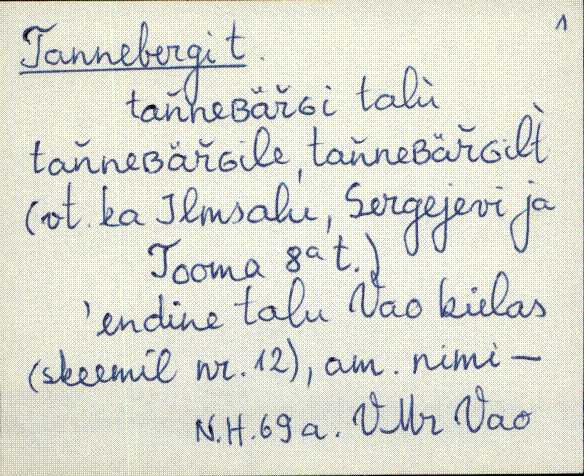 1
Tannebergi t.
tan̆neʙär̆ɢi talù
tan̆neʙär̆ɢile, tan̆neʙär̆ɢilt̀
(vt. ka Ilmsalu, Sergejevi ja
Tooma 8ª t.)
'endine talu Vao külas
(skeemil nr. 12), am. nimi –
N.H. 69 a. VMr Vao